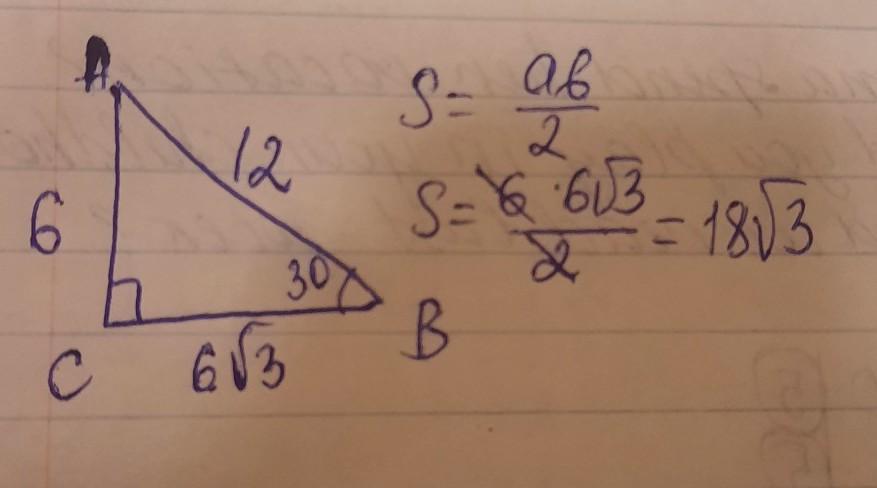 A
12
6
30
C
6√3
B
S = ab/2
S = 6 · 6√3/2 = 18√3